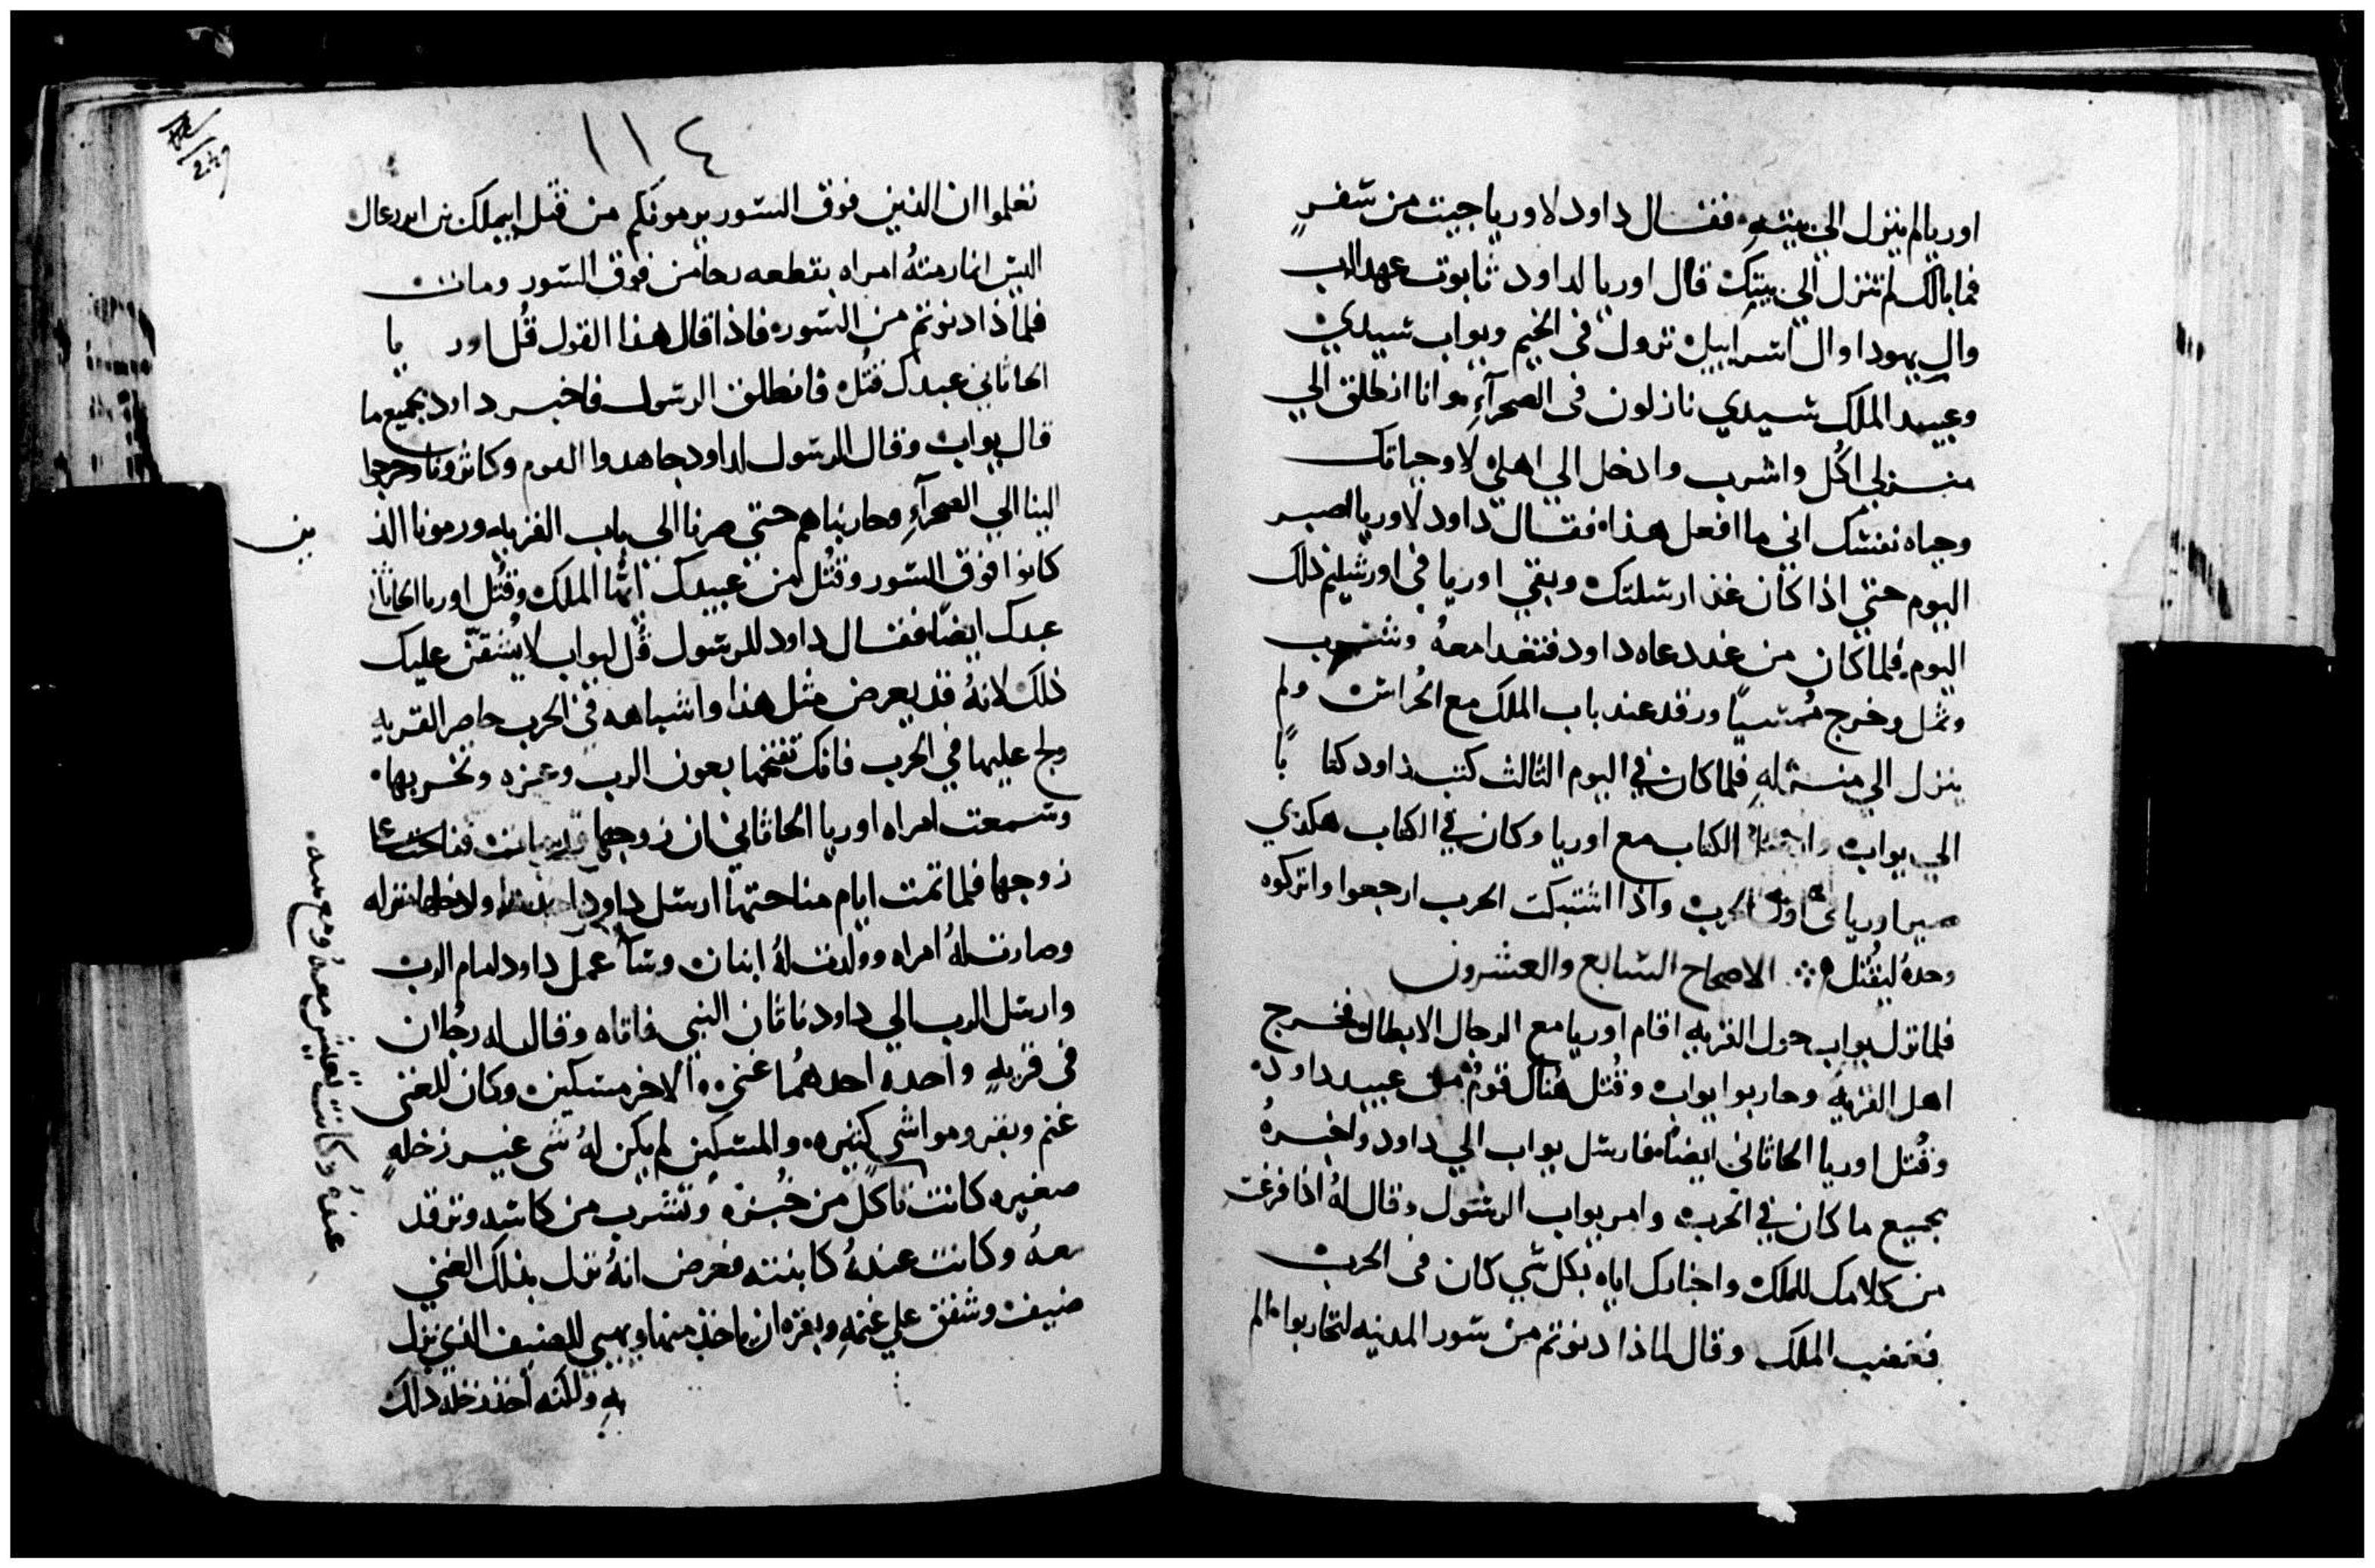 اوريا لم ينزل الي بيته فقال داود لاوريا جيت من سفرٍ
فما بالك لم تنزل الي بيتك قال اوريا لداود ثابوت عهد الرب
وال يهودا وال اسراييل نزول في الخيم ويواب سيدي
وعبيد الملك سيدي نازلون في الصحرآءِ وانا انطلق الي
منزلي اكل واشرب وادخل الي اهلي لا وحياتك
وحياه نفسك اني ما افعل هذا فقال داود لاوريا اصبر
اليوم حتي اذا كان غد ارسلتك وبقي اوريا في اورشليم ذلك
اليوم فلما كان من غدد دعاه داود فتغدا معهُ وشرب
وثمل وخرج مُمسياً ورقد عند باب الملك مع الحُراس ولم
ينزل الي منزله فلما كان في اليوم الثالث كتب داود كتاباً
الي يواب الكتاب مع اوريا وكان في الكتاب هكذي
صير اوريا في اول الحرب واذا اشتبكت الحرب ارجعوا واتركوه
وحدهُ ليقُتل ❖ الاصحاح السابع والعشرون
فلما نزل يواب حول القريه اقام اوريا مع الرجال الابطال فخرج
اهل القريه وحاربوا يواب وقُتل هناك قومٌ من عبيد داود
وقُتل اوريا الحاثاني ايضاً فارسل يواب الي داود واخبرهُ
بجميع ما كان في الحرب وامر يواب الرسول وقال لهُ اذا فرغت
من كلامك للملك واخبارك اياه بكل شي كان في الحرب
فغضب الملك وقال لماذا دنوتم من سور المدينه لتحاربوا الم
١١٤
تعلموا ان الذين فوق السور يرمونكم من قتل ابيملك بن
اليس انما رمتهُ امراه بقطعه رحا من فوق السور ومات
فلماذا دنوتم من السور فاذا قال هذا القول قُل اوريا
الحاثاني عبدك قُتل فانطلق الرسول فاخبر داود بجميع ما
قال يواب وقال الرسول لداود جاهدوا القوم وخرجوا
الينا الي الصحرآءِ وحاربناهم حتي صرنا الي باب القريه ورمونا الذ
ين
كانوا فوق السور وقُتل من عبيدك ايُّها الملك وقُتل اوريا الحاثاني
عبدك ايضاً فقال داود للرسول قُل ليواب لا يشقنّ عليك
ذلك لانهُ قد يعرض مثل هذا واشباهه في الحرب حاصر القريه
ولج عليها في الحرب فانك تفتحها بعون الرب وعزه وتخربها
وسمعت امراه اوريا الحاثاني ان زوجها قد مات فناحت علي
زوجها فلما تمت ايام مناحتها ارسل داود وادخلها منزله
وصارت لهُ امراه وولدت لهُ ابنان وسآ عمل داود امام الرب
وارسل الرب الي داود ناثان النبي فاتاه وقال له رجُلان
في قريهٍ واحده احدهُما غني والاخر مسكين وكان للغني
غنم وبقر ومواشي كثيره والمسكين لم يكن لهُ شي غير رخله
صغيره كانت تاكل من خُبزه وتشرب من كاسه وترقد
معهُ وكانت عندهُ كابنته فعرض انهُ نزل بذلك الغني
ضيف وشفق علي غنمه وبقره ان ياخذ منها ويهيي للضيف الذي نزل
به ولكنه اخذ رخله ذلك
عندهُ وكانت تعيش معهُ ومع